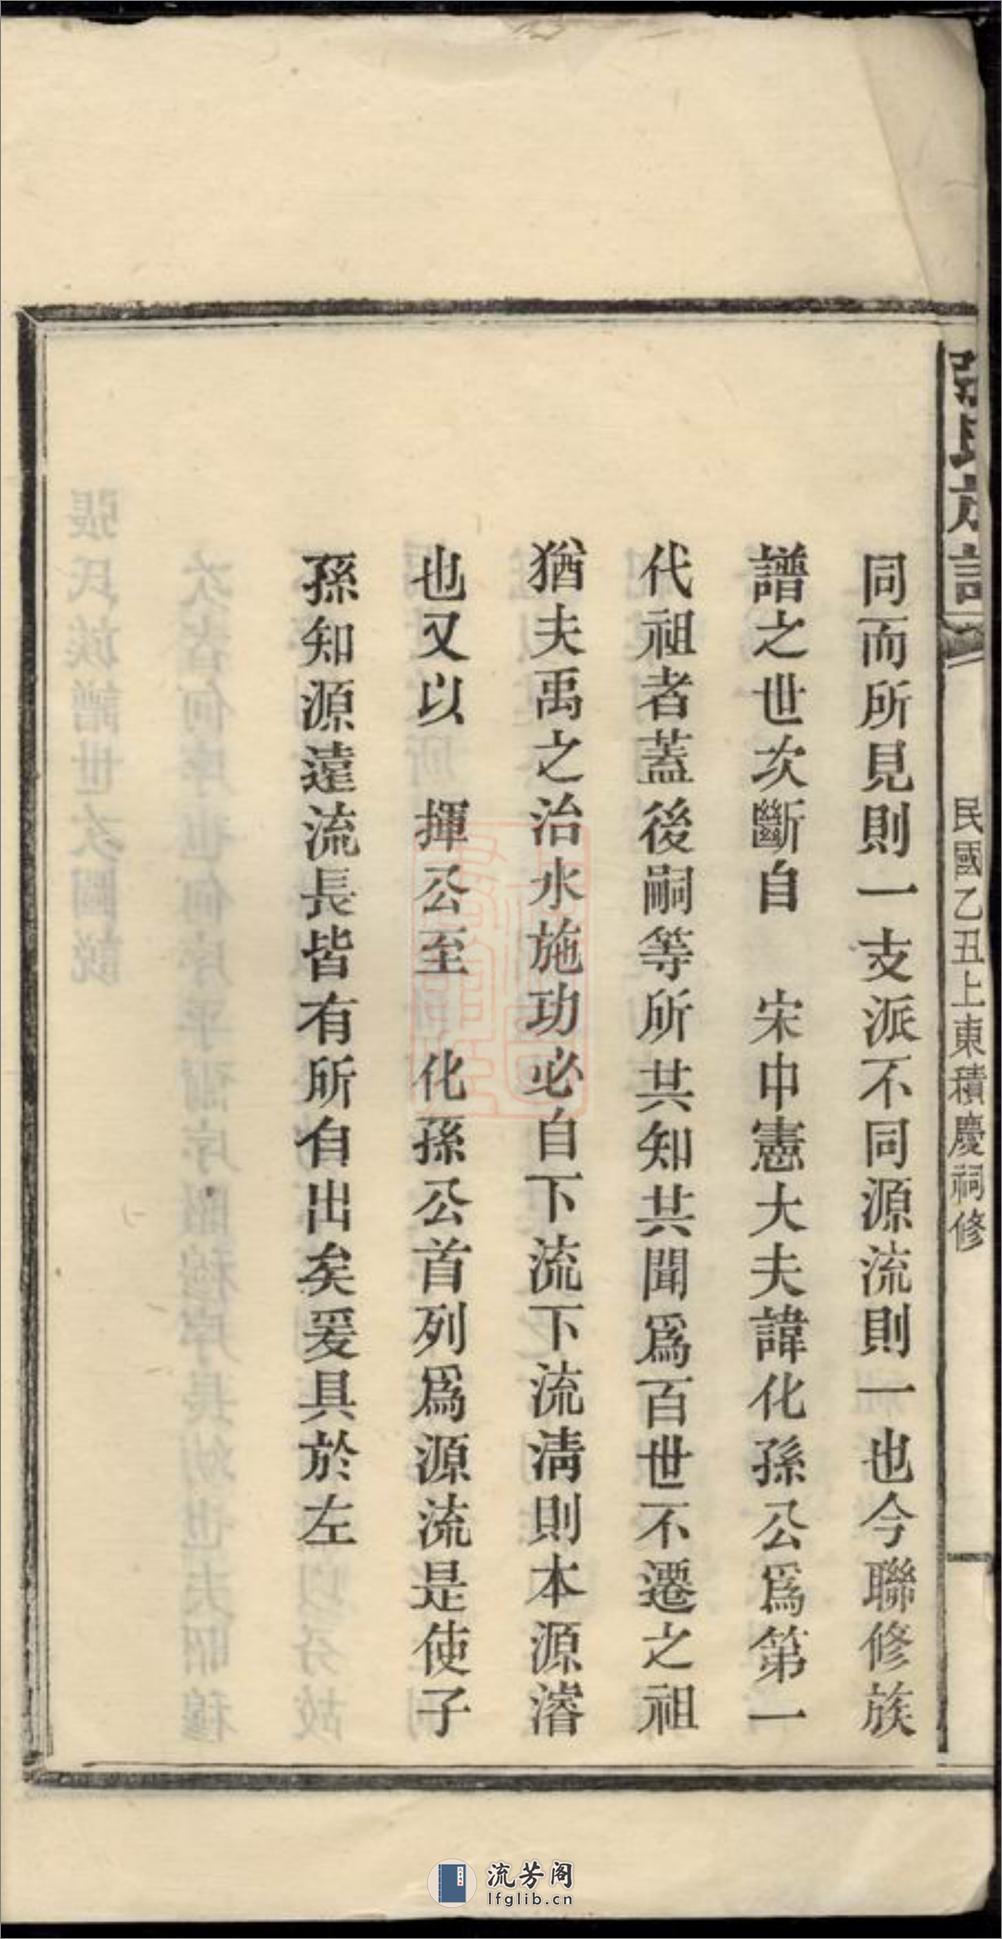 張氏族譜
民國乙丑上東積慶祠修
同而所見則一支派不同源流則一也今聯修族
譜之世次斷自　宋中憲大夫諱化孫公爲第一
代祖者蓋後嗣等所共知共聞爲百世不遷之祖
猶夫禹之治水施功必自下流下流淸則本源濬
也又以　揮公至　化孫公首列爲源流是使子
孫知源遠流長皆有所自出矣爰具於左
流芳阁
lfglib.cn